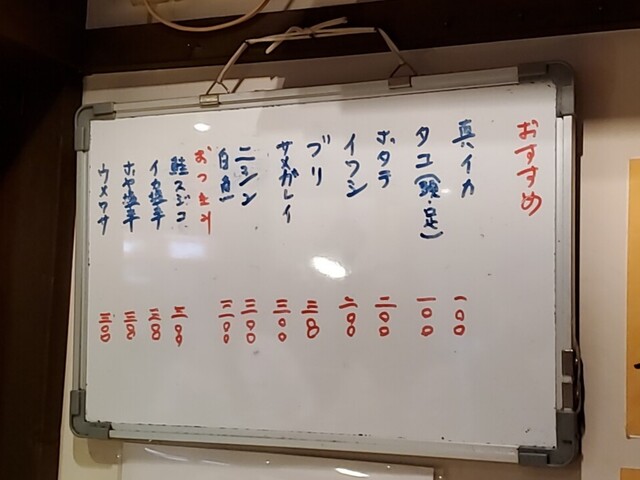 おすすめ
真イカ 一〇〇
タコ(頭・足) 一〇〇
ホタテ 二〇〇
イワシ 二〇〇
ブリ 三〇〇
サメガレイ 三〇〇
ニシン 三〇〇
白魚 三〇〇
おつまみ
鮭スジコ 三〇〇
イカ塩辛 三〇〇
ホヤ塩辛 三〇〇
ウメクラ 三〇〇